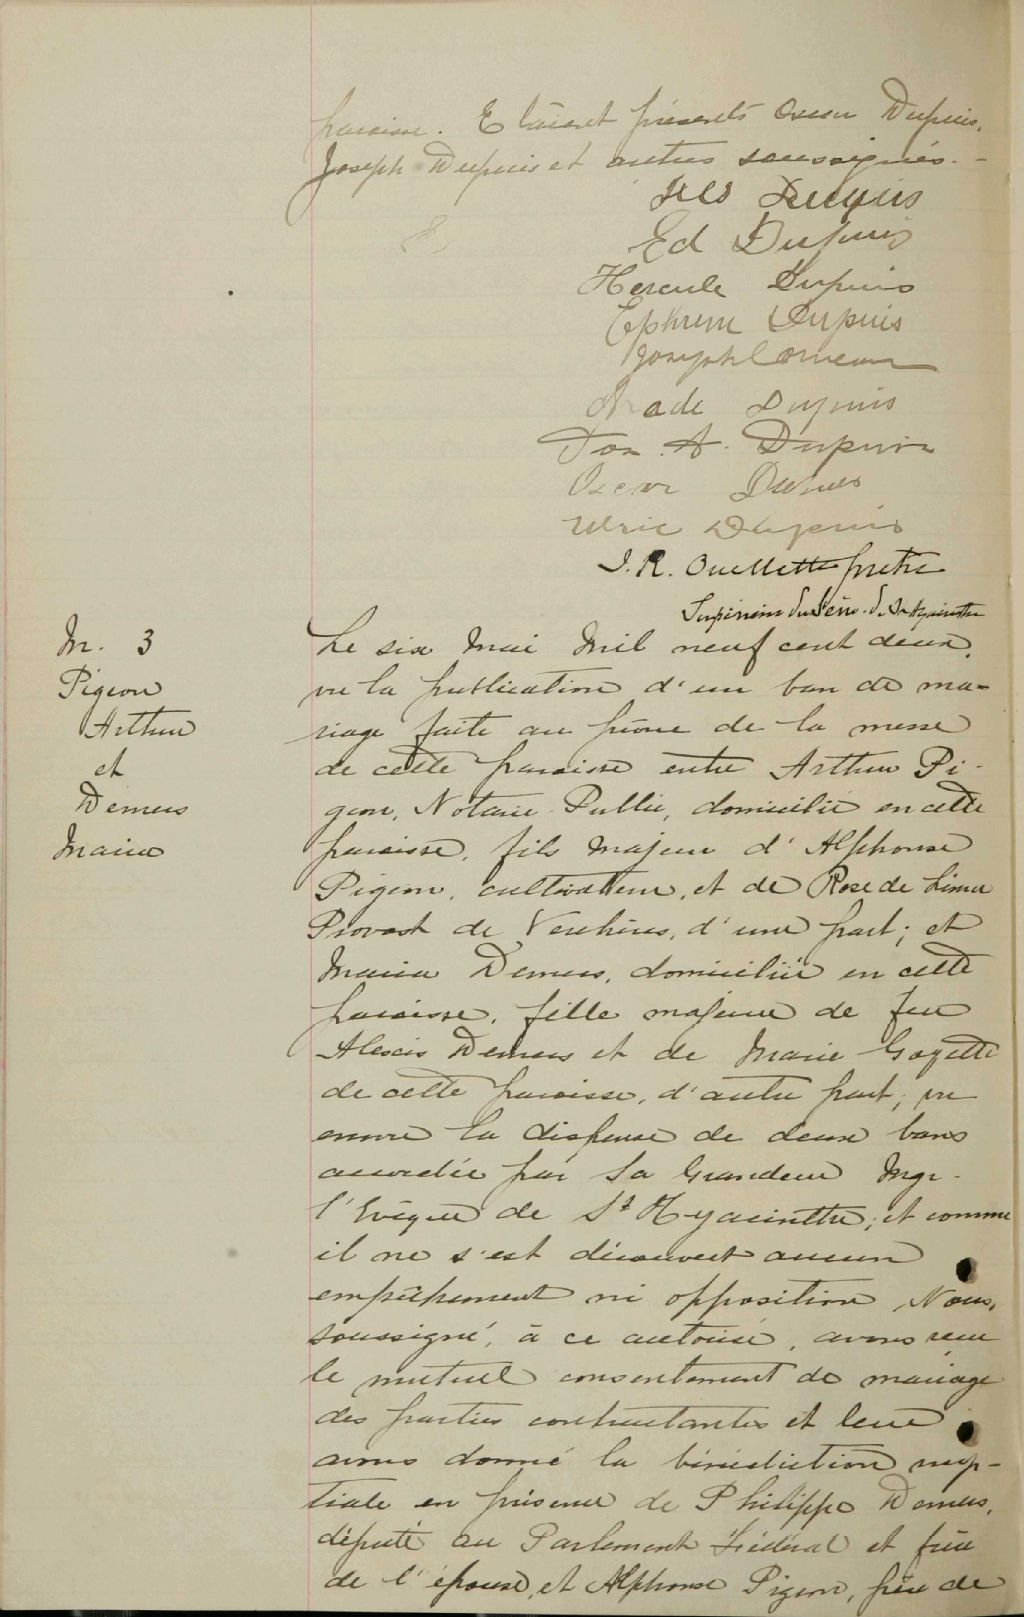 paroisse. Etaient présents Oscar Dupuis,
Joseph Dupuis et autres soussignés. -
Dupuis
Ed Dupuis
Hercule Dupuis
Ephrem Dupuis
Joseph Comeau
Dupuis
Jos. A. Dupuis
Oscar Dupuis
Ulric Dupuis
J. R. Ouellette ptre
Supérieur du Sém. de St Hyacinthe
M. 3
Pigeon
Arthur
et
Demers
Maria
Le six Mai Mil neuf cent deux,
vu la publication d'un ban de ma-
riage faite au prône de la messe
de cette paroisse entre Arthur Pi-
geon, Notaire Public, domicilié en cette
paroisse, fils majeur d'Alphonse
Pigeon, cultivateur, et de Rose de Lima
Provost de Verchères, d'une part; et
Maria Demers, domiciliée en cette
paroisse, fille majeure de feu
Alexis Demers et de Marie Goyette
de cette paroisse, d'autre part; vu
encore la dispense de deux bans
accordée par Sa Grandeur Mgr.
l'Evêque de St Hyacinthe; et comme
il ne s'est découvert aucun
empêchement ni opposition, Nous,
soussigné, à ce autorisé, avons reçu
le mutuel consentement de mariage
des parties contractantes et leur
avons donné la bénédiction nup-
tiale en présence de Philippe Demers,
député au Parlement Fédéral et frère
de l'épouse, et Alphonse Pigeon, père de